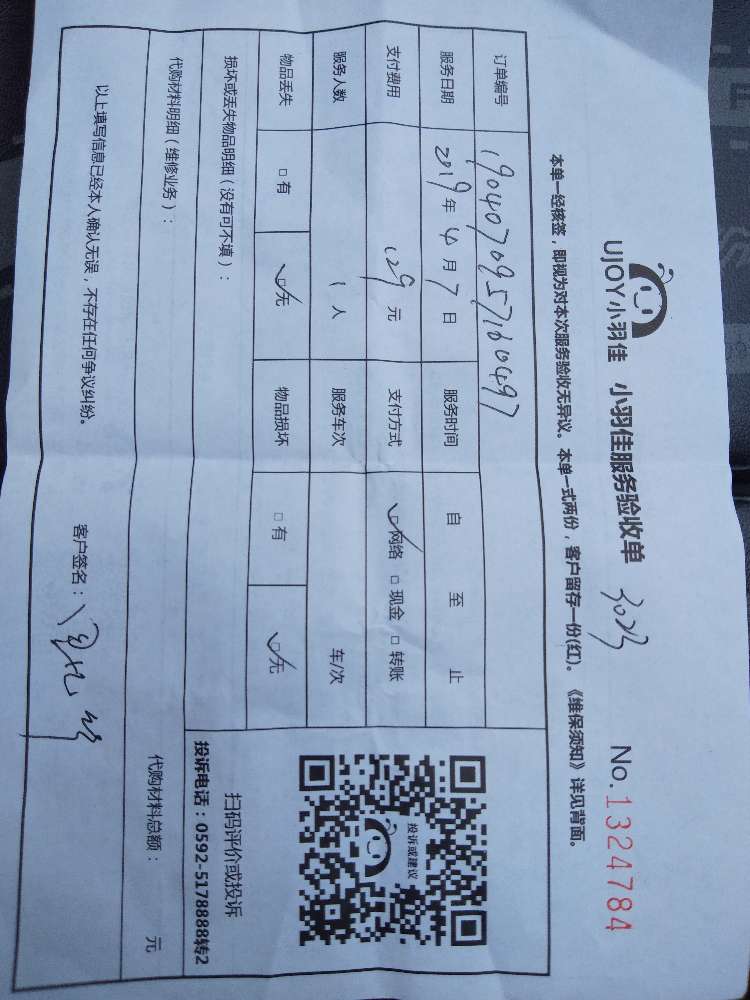 UJOY小羽佳 小羽佳服务验收单 No.1324784
本单一经核签，即视为对本次服务验收无异议。本单一式两份，客户留存一份(红)。《维保须知》详见背面。
订单编号 1904070957160497
服务日期 2019年4月7日 服务时间 自 至 止
支付费用 129元 支付方式 □网络 □现金 □转账
服务人数 1人 服务车次 车/次
物品丢失 □有 □无 物品损坏 □有 □无
损坏或丢失物品明细（没有可不填）：
代购材料明细（维修业务）： 代购材料总额： 元
以上填写信息已经本人确认无误，不存在任何争议纠纷。 客户签名：
投诉或建议
扫码评价或投诉
投诉电话：0592-5178888转2